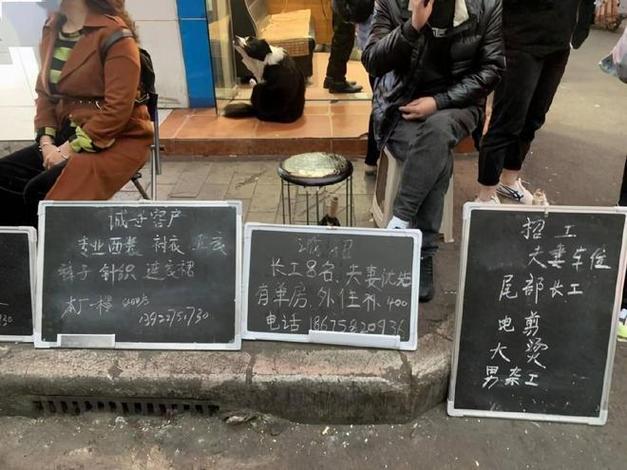 客户
专业西装 衬衣
裤子 针织 连衣裙
13922751730
诚招
长工8名,夫妻优先
有单房,外住补400
电话
招工
夫妻车位
尾部长工
电剪
大烫
男杂工